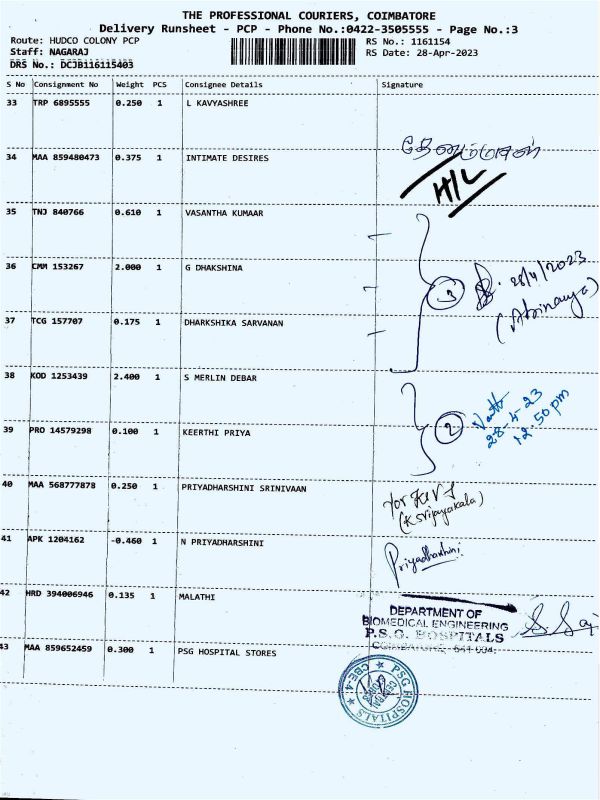 THE PROFESSIONAL COURIERS, COIMBATORE
Delivery Runsheet - PCP - Phone No.:0422-3505555 - Page No.:3
Route: HUDCO COLONY PCP
RS No.: 1161154
Staff: NAGARAJ
RS Date: 28-Apr-2023
DRS No.: DCJB116115403
S No Consignment No Weight PCS Consignee Details Signature
33 TRP 6895555 0.250 1 L KAVYASHREE
34 MAA 859480473 0.375 1 INTIMATE DESIRES
H/L
35 TNJ 840766 0.610 1 VASANTHA KUMAAR
36 CMM 153267 2.000 1 G DHAKSHINA
3 28/4/2023
(Abinaya)
37 TCG 157707 0.175 1 DHARKSHIKA SARVANAN
38 KOD 1253439 2.400 1 S MERLIN DEBAR
2
28-4-23
12.50 pm
39 PRO 14579298 0.100 1 KEERTHI PRIYA
40 MAA 568777878 0.250 1 PRIYADHARSHINI SRINIVAAN
for
(K Srijayakala)
41 APK 1204162 -0.460 1 N PRIYADHARSHINI
Priyadharshini
42 HRD 394006946 0.135 1 MALATHI
DEPARTMENT OF
BIOMEDICAL ENGINEERING
P.S.G. HOSPITALS
COIMBATORE - 641 004.
43 MAA 859652459 0.300 1 PSG HOSPITAL STORES
PSG HOSPITALS
CBE-4